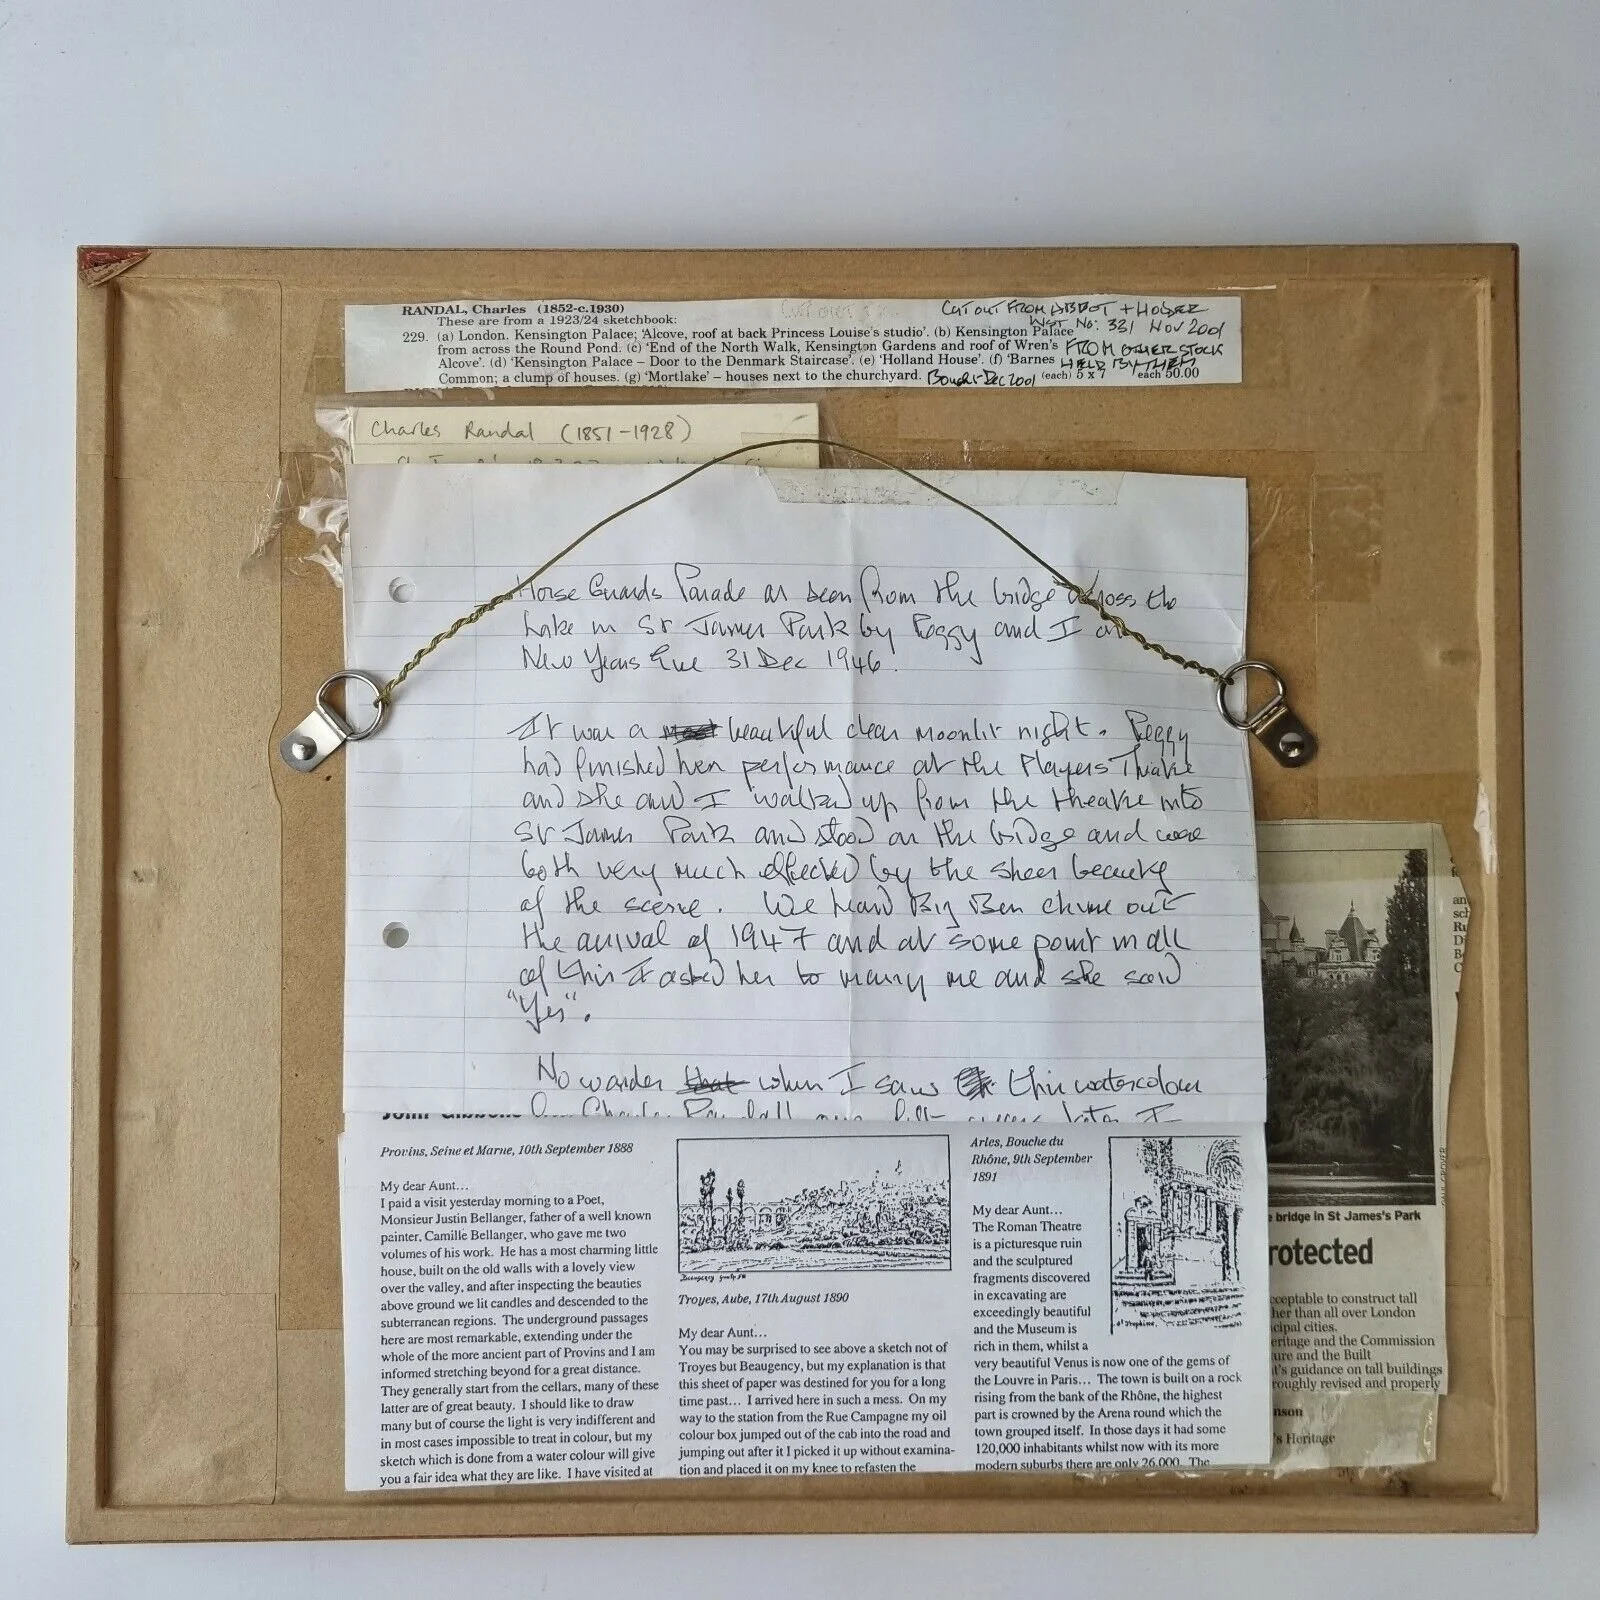 RANDAL, Charles (1852-c.1930)
These are from a 1923/24 sketchbook:
229. (a) London. Kensington Palace; 'Alcove, roof at back Princess Louise's studio'. (b) Kensington Palace
from across the Round Pond. (c) 'End of the North Walk, Kensington Gardens and roof of Wren's
Alcove'. (d) 'Kensington Palace – Door to the Denmark Staircase'. (e) 'Holland House'. (f) 'Barnes
Common; a clump of houses. (g) 'Mortlake' – houses next to the churchyard.
(each) 5 x 7 each 50.00
CUT OUT FROM ABBOT + HOLDER
LIST No: 331 NOV 2001
FROM OTHER STOCK
HELD BY THEM
Bought Dec 2001
Charles Randal (1851-1928)
Horse Guards Parade as seen from the bridge across the
Lake in St James Park by Peggy and I on
New Years Eve 31 Dec 1946.
It was a beautiful clear moonlit night. Peggy
had finished her performance at the Players Theatre
and she and I walked up from the theatre into
St James Park and stood on the bridge and were
both very much effected by the sheer beauty
of the scene. We heard Big Ben chime out
the arrival of 1947 and at some point in all
of this I asked her to marry me and she said
"Yes".
No wonder that when I saw this watercolour
John Gibbons
Provins, Seine et Marne, 10th September 1888
My dear Aunt...
I paid a visit yesterday morning to a Poet,
Monsieur Justin Bellanger, father of a well known
painter, Camille Bellanger, who gave me two
volumes of his work. He has a most charming little
house, built on the old walls with a lovely view
over the valley, and after inspecting the beauties
above ground we lit candles and descended to the
subterranean regions. The underground passages
here are most remarkable, extending under the
whole of the more ancient part of Provins and I am
informed stretching beyond for a great distance.
They generally start from the cellars, many of these
latter are of great beauty. I should like to draw
many but of course the light is very indifferent and
in most cases impossible to treat in colour, but my
sketch which is done from a water colour will give
you a fair idea what they are like. I have visited at
Troyes, Aube, 17th August 1890
My dear Aunt...
You may be surprised to see above a sketch not of
Troyes but Beaugency, but my explanation is that
this sheet of paper was destined for you for a long
time past... I arrived here in such a mess. On my
way to the station from the Rue Campagne my oil
colour box jumped out of the cab into the road and
jumping out after it I picked it up without examina-
tion and placed it on my knee to refasten the
Arles, Bouche du
Rhône, 9th September
1891
My dear Aunt...
The Roman Theatre
is a picturesque ruin
and the sculptured
fragments discovered
in excavating are
exceedingly beautiful
and the Museum is
rich in them, whilst a
very beautiful Venus is now one of the gems of
the Louvre in Paris... The town is built on a rock
rising from the bank of the Rhône, the highest
part is crowned by the Arena round which the
town grouped itself. In those days it had some
120,000 inhabitants whilst now with its more
modern suburbs there are only 26,000. The
bridge in St James's Park
rotected
cceptable to construct tall
her than all over London
cipal cities.
eritage and the Commission
ure and the Built
t's guidance on tall buildings
roughly revised and properly
nson
's Heritage